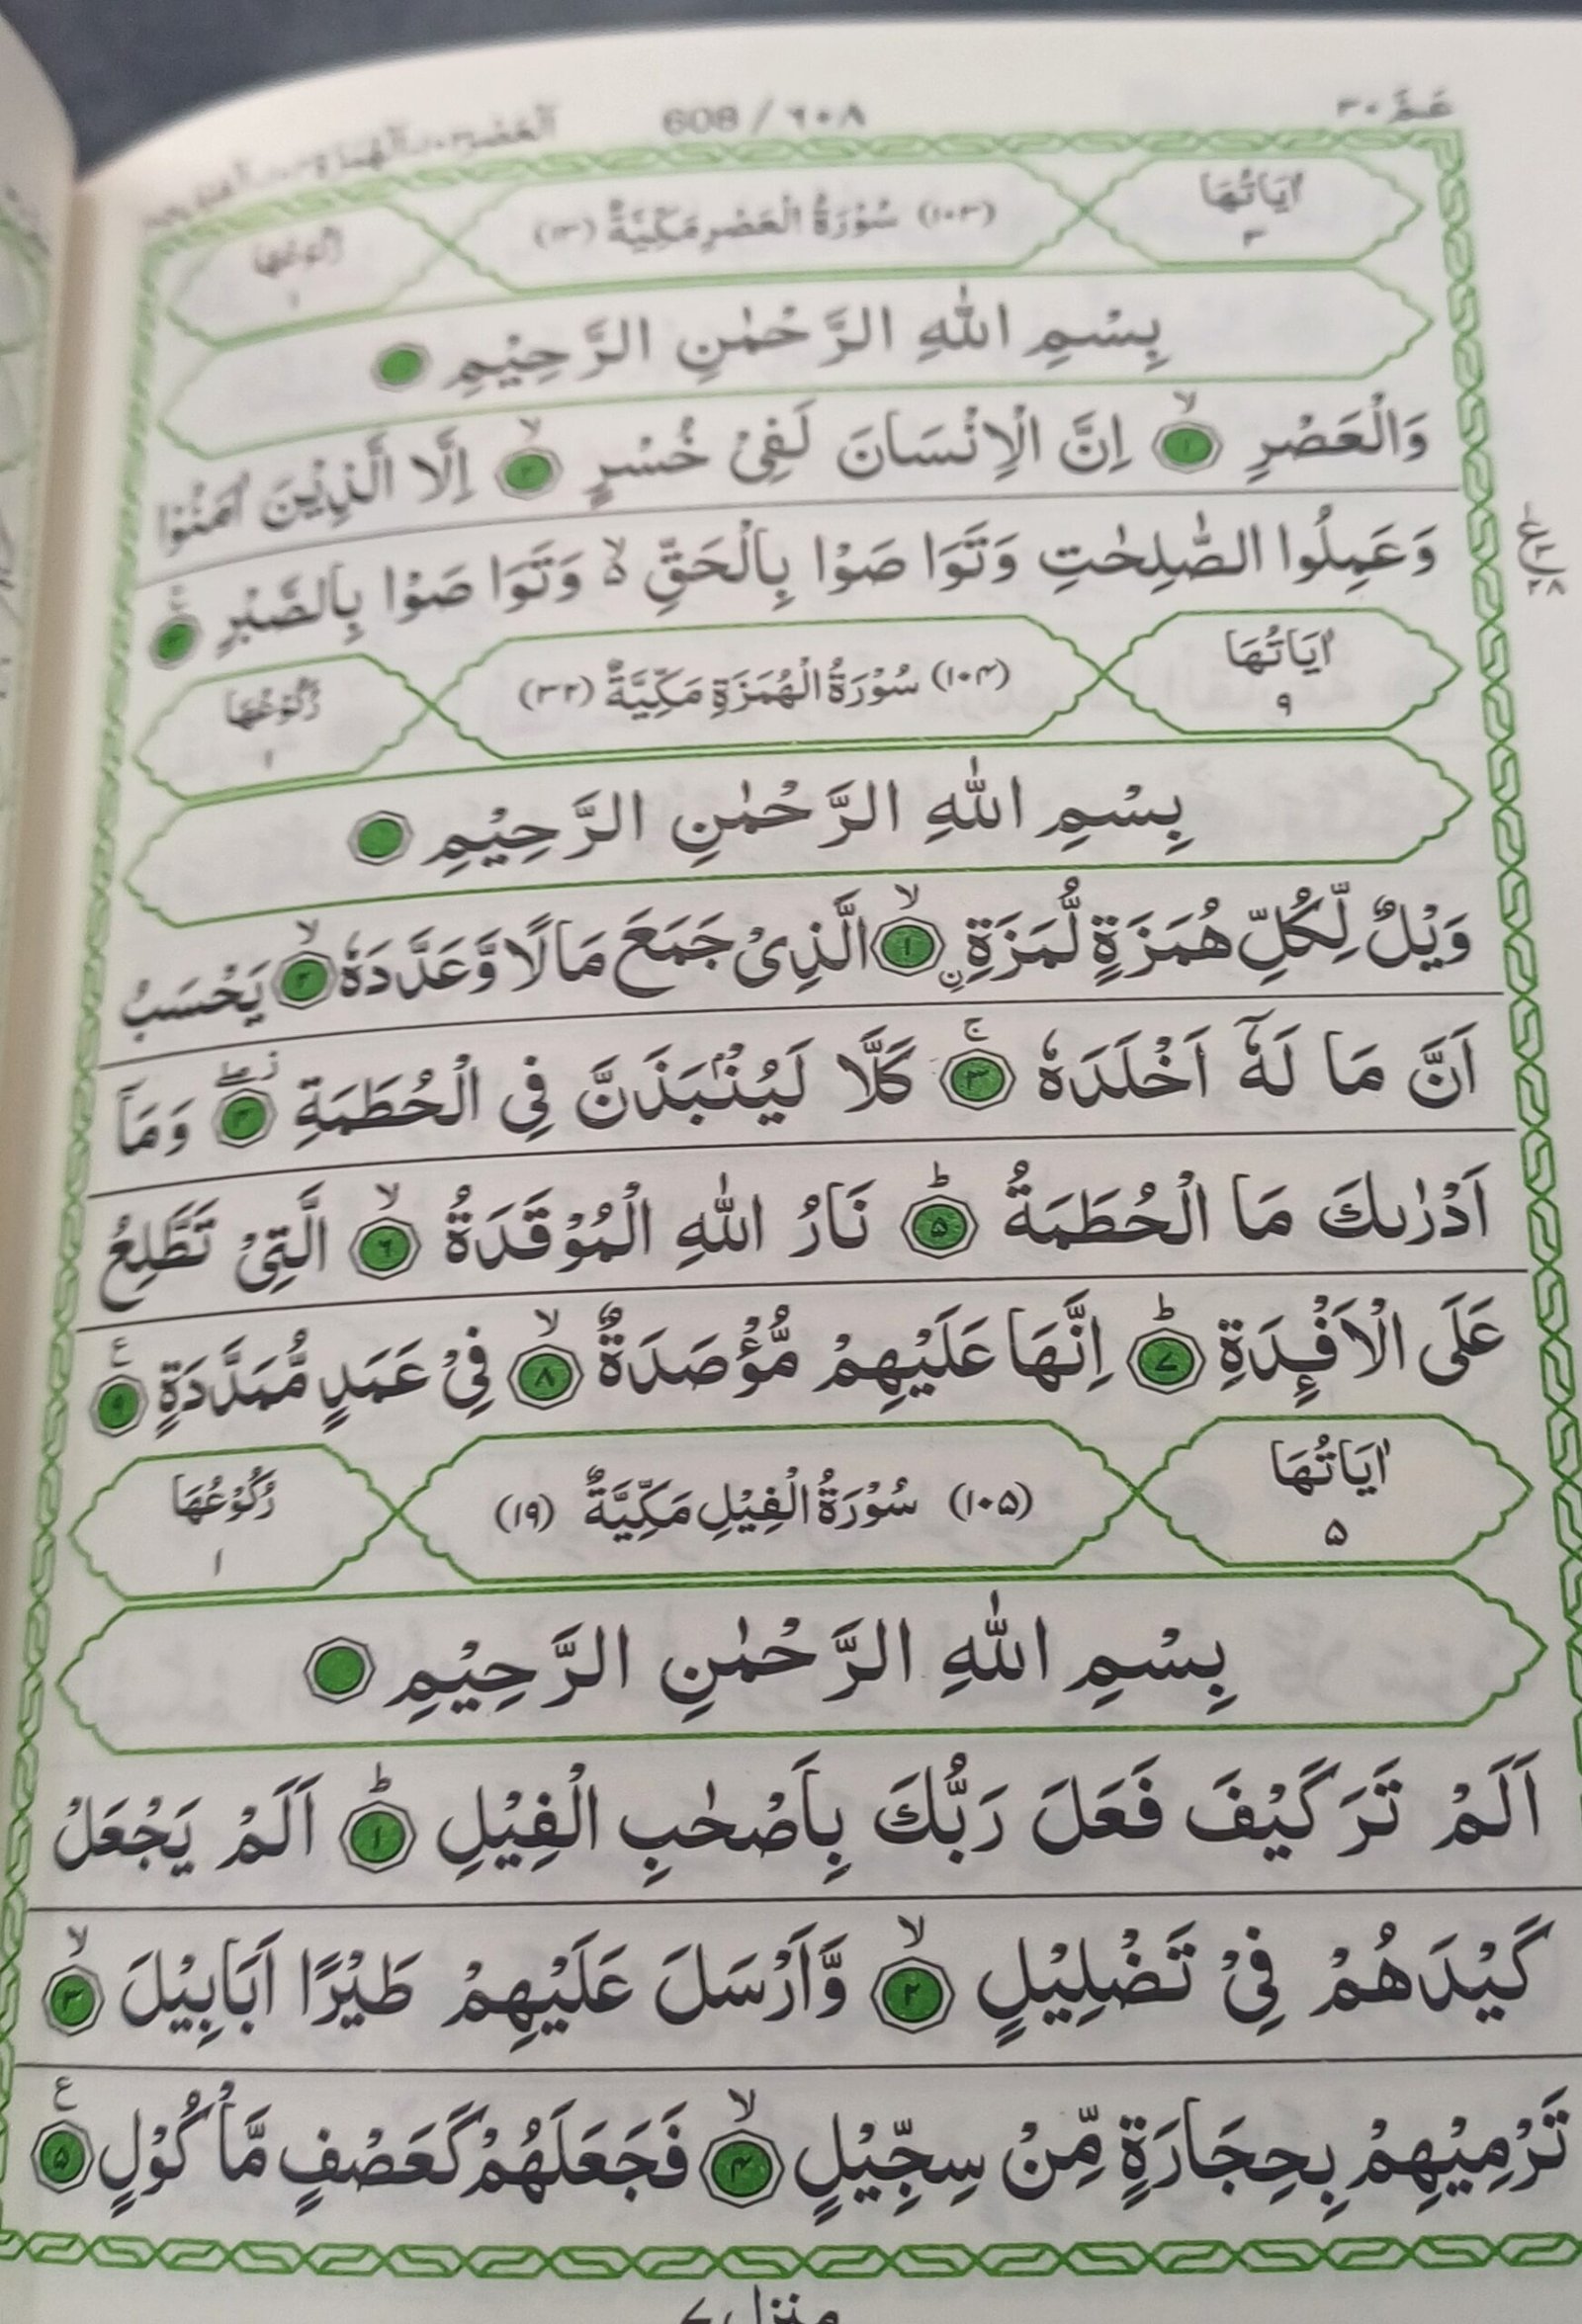 عَمَّ ٣٠
608 / ٦٠٨
اٰيَاتُهَا
٣
(١٠٣) سُوْرَةُ الْعَصْرِ مَكِّيَّةٌ (١٣)
رُكُوْعُهَا
١
بِسْمِ اللّٰهِ الرَّحْمٰنِ الرَّحِيْمِ
وَالْعَصْرِ ۙ ١ اِنَّ الْاِنْسَانَ لَفِىْ خُسْرٍ ۙ ٢ اِلَّا الَّذِيْنَ اٰمَنُوْا
وَعَمِلُوا الصّٰلِحٰتِ وَتَوَا صَوْا بِالْحَقِّ ۙ وَتَوَا صَوْا بِالصَّبْرِ ٣
اٰيَاتُهَا
٩
(١٠٤) سُوْرَةُ الْهُمَزَةِ مَكِّيَّةٌ (٣٢)
رُكُوْعُهَا
١
بِسْمِ اللّٰهِ الرَّحْمٰنِ الرَّحِيْمِ
وَيْلٌ لِّكُلِّ هُمَزَةٍ لُّمَزَةٍ ۙ ١ ۨالَّذِىْ جَمَعَ مَالًا وَّعَدَّدَهٗ ۙ ٢ يَحْسَبُ
اَنَّ مَا لَهٗۤ اَخْلَدَهٗ ۚ ٣ كَلَّا لَيُنْۢبَذَنَّ فِى الْحُطَمَةِ ۖ ٤ وَمَاۤ
اَدْرٰىكَ مَا الْحُطَمَةُ ؕ ٥ نَارُ اللّٰهِ الْمُوْقَدَةُ ۙ ٦ الَّتِىْ تَطَّلِعُ
عَلَى الْاَفْـِٕدَةِ ؕ ٧ اِنَّهَا عَلَيْهِمْ مُّؤْصَدَةٌ ۙ ٨ فِىْ عَمَدٍ مُّمَدَّدَةٍ ٩
اٰيَاتُهَا
٥
(١٠٥) سُوْرَةُ الْفِيْلِ مَكِّيَّةٌ (١٩)
رُكُوْعُهَا
١
بِسْمِ اللّٰهِ الرَّحْمٰنِ الرَّحِيْمِ
اَلَمْ تَرَ كَيْفَ فَعَلَ رَبُّكَ بِاَصْحٰبِ الْفِيْلِ ؕ ١ اَلَمْ يَجْعَلْ
كَيْدَهُمْ فِىْ تَضْلِيْلٍ ۙ ٢ وَّاَرْسَلَ عَلَيْهِمْ طَيْرًا اَبَابِيْلَ ۙ ٣
تَرْمِيْهِمْ بِحِجَارَةٍ مِّنْ سِجِّيْلٍ ۙ ٤ فَجَعَلَهُمْ كَعَصْفٍ مَّاْ كُوْلٍ ٥
منزل ٧